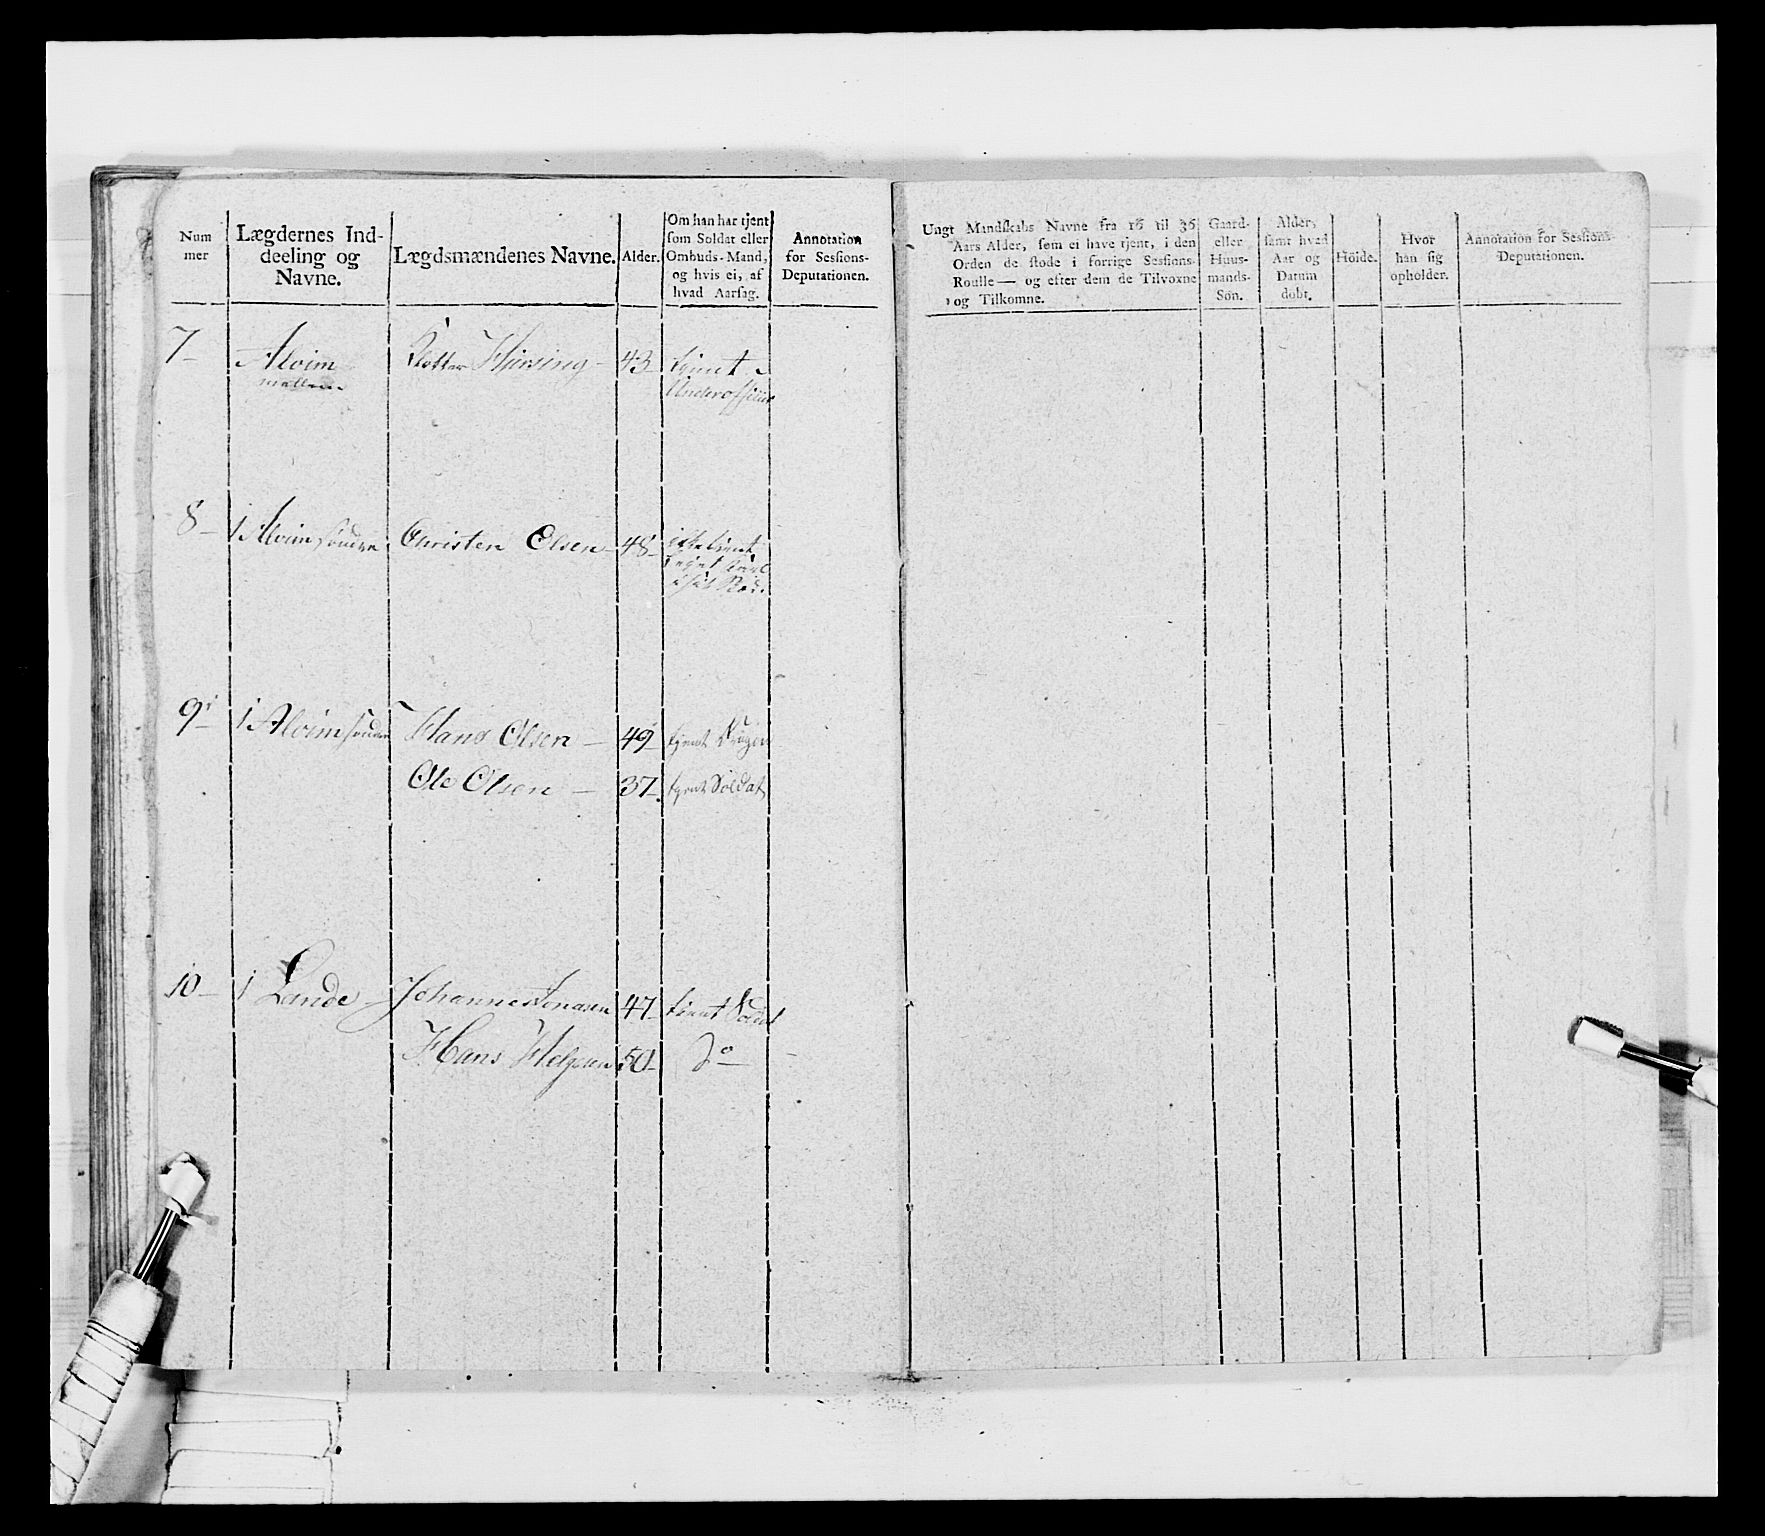 Num
mer
Lægdernes Ind-
deeling og
Navne.
Lægdsmændenes Navne.
Alder.
Om han har tjent
som Soldat eller
Ombuds-Mand,
og hvis ei, af
hvad Aarsag.
Annotation
for Sessions-
Deputationen.
Ungt Mandskabs Navne fra 16 til 36
Aars Alder, som ei have tjent, i den
Orden de stode i forrige Sessions-
Roulle — og efter dem de Tilvoxne
og Tilkomne.
Gaard-
eller
Huus-
mands-
Søn.
Alder,
samt hvad
Aar og
Datum
døbt.
Höide.
Hvor
han sig
opholder.
Annotation for Sessions-
Deputationen.
7 Alvim Hirsing 43 tjent
mellem Underofficeer
8 1 Alvim søndre Christen Olsen 48
9 1 Alvim søndre Hans Olsen 49 tjent
Ole Olsen 37 tjent Soldat
10 1 Lande Johannes Jonasen 47 tjent Soldat
Hans Helgesen 50 do